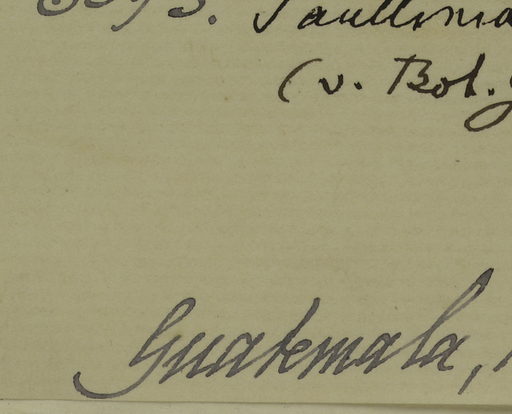 Paullinia
(v. Bot.
Guatemala,